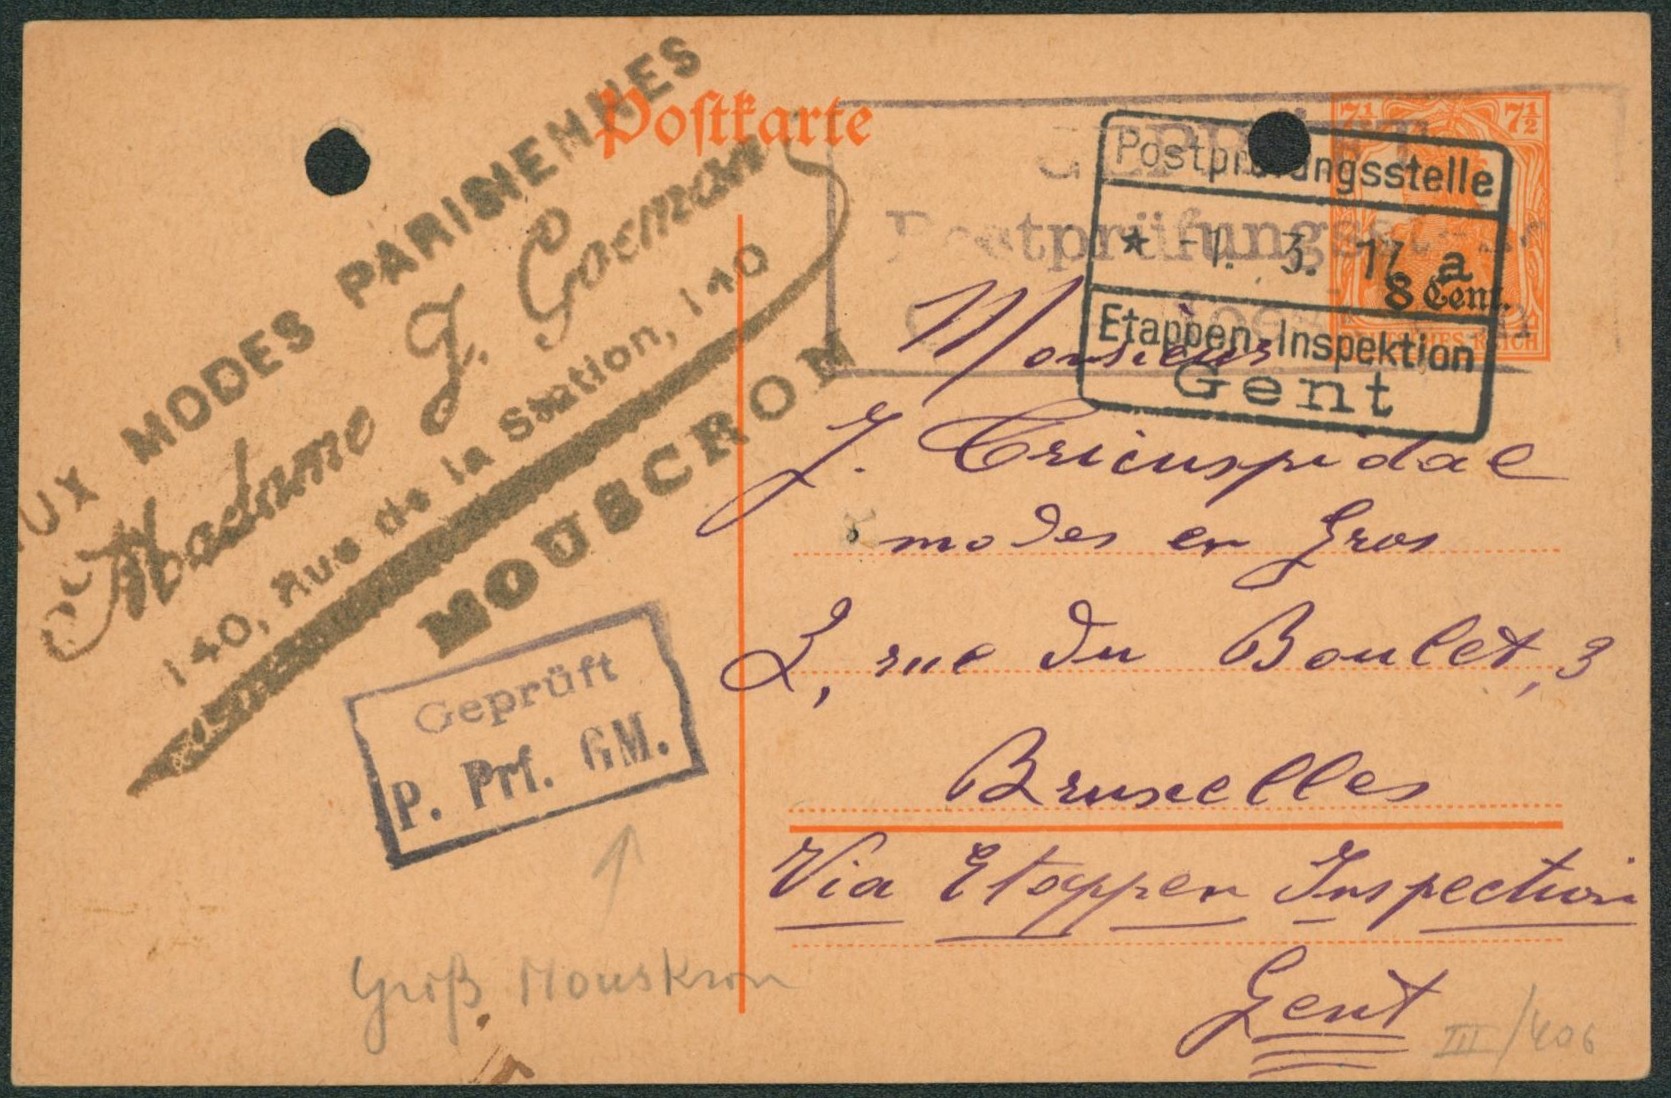 AUX MODES PARISIENNES
Madame J. Goeman
140, Rue de la Station, 140
MOUSCRON
Postkarte
7½ 7½
8 Cent.
Geprüft
Postprüfungsstelle
Postprüfungsstelle
* -1. 3. 17 a
Etappen-Inspektion
Gent
Monsieur
J. Tricuspidal
modes en Gros
2, rue du Boulet, 3
Bruxelles
Via Etappen Inspection
Gent
Geprüft
P. Prf. GM.
Groß. Mouskron
III/406